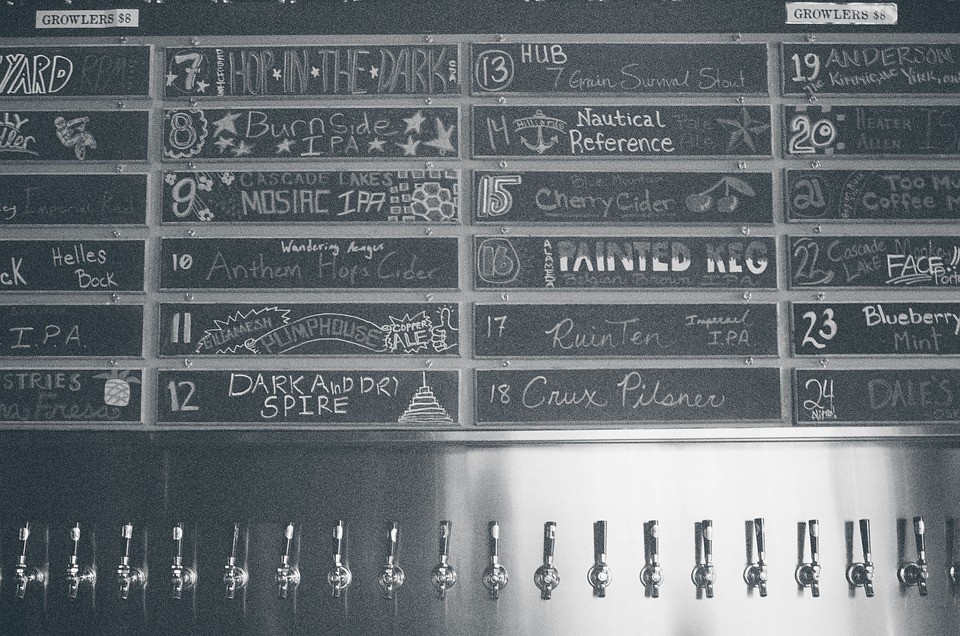 GROWLERS $8
GROWLERS $8
YARD
Helles
Bock
I.P.A.
STRIES
Fresa
7 HOP IN THE DARK
8 BurnSide
IPA
9 CASCADE LAKES
MOSIAC IPA
10 Wandering
Anthem Hops Cider
11 GILGAMESH PUMPHOUSE COPPER
ALE
12 DARK AnD DRY
SPIRE
13 HUB
7 Grain Survival Stout
14 Nautical
Reference
15
Cherry Cider
16 PAINTED KEG
17 RuinTen Imperial
IPA
18 Crux Pilsner
19 ANDERSON
20 HEATER
ALLEN
21 TOO MU
COFFEE M
22 Cascade
LAKE FACE
23 Blueberry
Mint
24 DALE'S
Nitro!